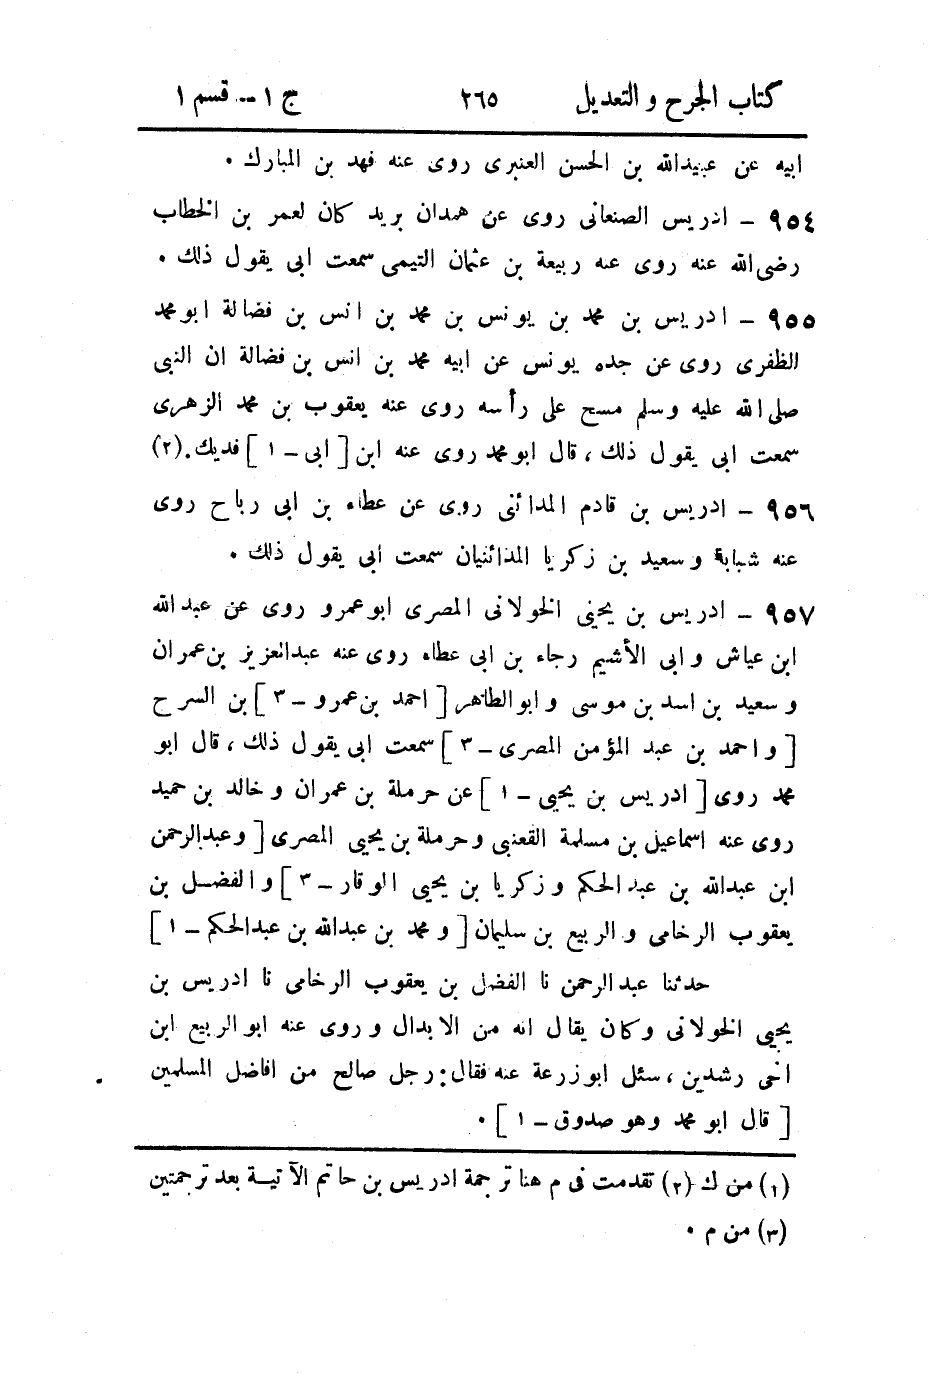 كتاب الجرح و التعديل ٢٦٥ ج ١ – قسم ١
ابيه عن عبيدالله بن الحسن العنبرى روى عنه فهد بن المبارك .
٩٥٤ – ادريس الصنعانى روى عن همدان بريد كان لعمر بن الخطاب
رضى الله عنه روى عنه ربيعة بن عثمان التيمى سمعت ابى يقول ذلك .
٩٥٥ – ادريس بن محمد بن يونس بن محمد بن انس بن فضالة ابو محمد
الظفرى روى عن جده يونس عن ابيه محمد بن انس بن فضالة ان النبى
صلى الله عليه وسلم مسح على رأسه روى عنه يعقوب بن محمد الزهرى
سمعت ابى يقول ذلك ، قال ابو محمد روى عنه ابن [ ابى – ١ ] فديك . (٢)
٩٥٦ – ادريس بن قادم المدائنى روى عن عطاء بن ابى رباح روى
عنه شبابة و سعيد بن زكريا المدائنيان سمعت ابى يقول ذلك .
٩٥٧ – ادريس بن يحيى الخولانى المصرى ابو عمرو روى عن عبدالله
ابن عياش و ابى الأشيم رجاء بن ابى عطاء روى عنه عبدالعزيز بن عمران
و سعيد بن اسد بن موسى و ابو الطاهر [ احمد بن عمرو – ٣ ] بن السرح
[ و احمد بن عبد المؤمن المصرى – ٣ ] سمعت ابى يقول ذلك ، قال ابو
محمد روى [ ادريس بن يحيى – ١ ] عن حرملة بن عمران و خالد بن حميد
روى عنه اسماعيل بن مسلمة القعنبى و حرملة بن يحيى المصرى [ و عبدالرحمن
ابن عبدالله بن عبد الحكم و زكريا بن يحيى الوقار – ٣ ] و الفضل بن
يعقوب الرخامى و الربيع بن سليمان [ و محمد بن عبدالله بن عبدالحكم – ١ ]
حدثنا عبدالرحمن نا الفضل بن يعقوب الرخامى نا ادريس بن
يحيى الخولانى وكان يقال انه من الابدال و روى عنه ابو الربيع ابن
اخى رشدين ، سئل ابو زرعة عنه فقال : رجل صالح من افاضل المسلمين
[ قال ابو محمد وهو صدوق – ١ ] .
(١) من ك (٢) تقدمت فى م هنا ترجمة ادريس بن حاتم الآتية بعد ترجمتين
(٣) من م .